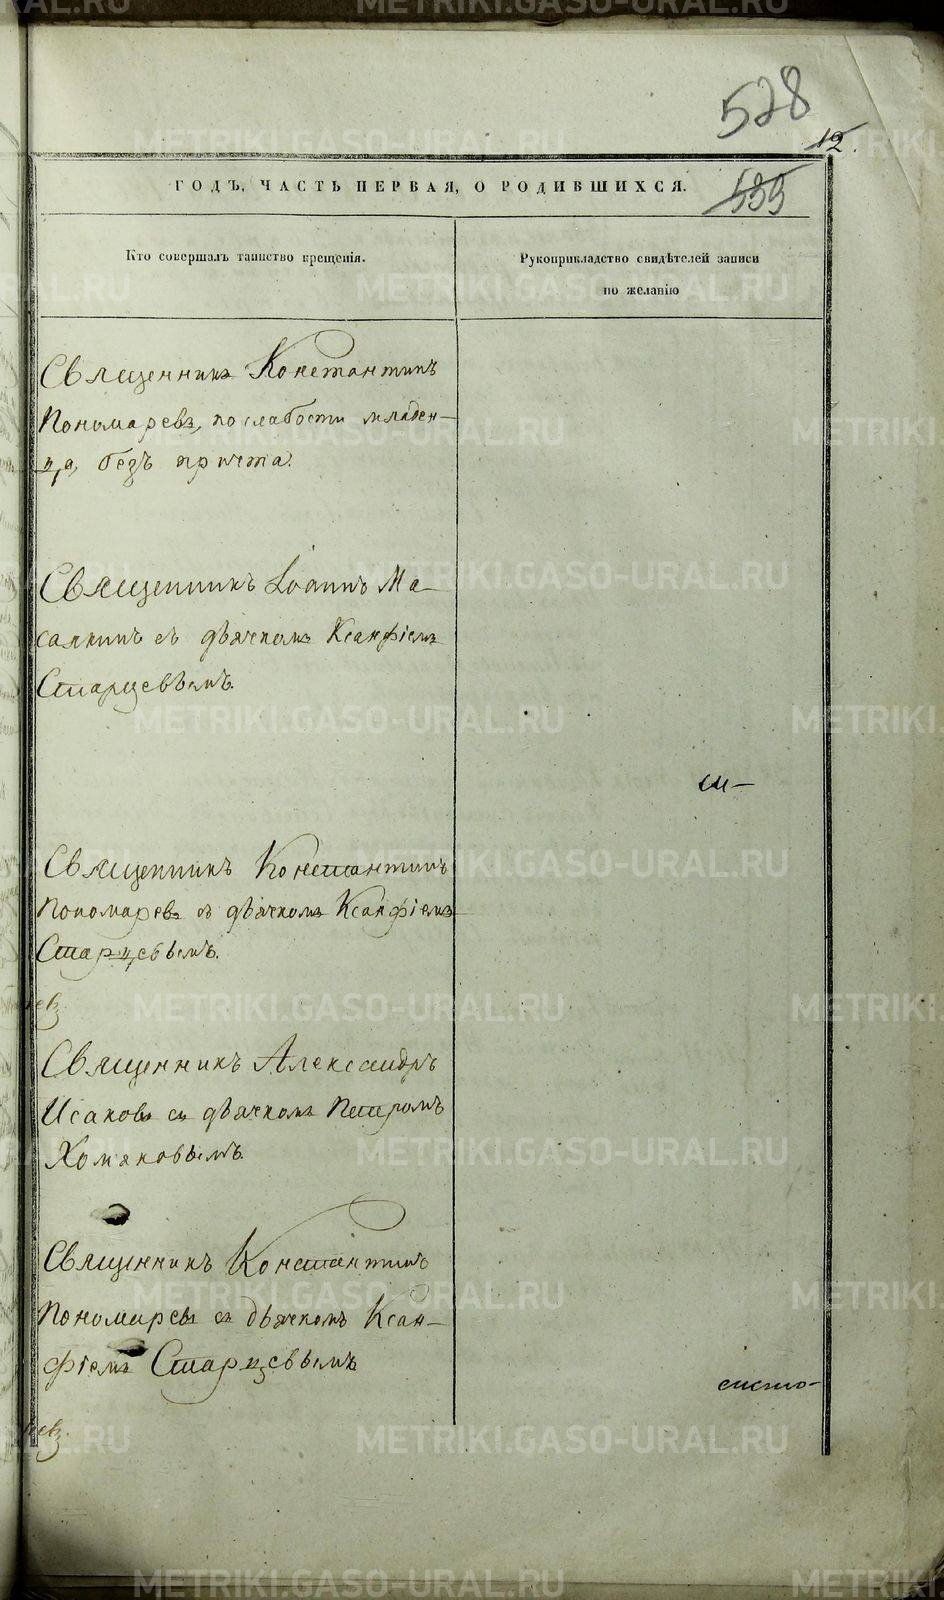 528
12.
535
ГОДЪ, ЧАСТЬ ПЕРВАЯ, О РОДИВШИХСЯ.
Кто совершалъ таинство крещенія.
Рукоприкладство свидѣтелей записи
по желанію
Священникъ Константинъ
Пономаревъ, по слабости младен-
ца, безъ причта.
Священникъ Іоаннъ Ма-
салкинъ съ дьячкомъ Ксанфіемъ
Старцевымъ.
Священникъ Константинъ
Пономаревъ съ дьячкомъ Ксанфіемъ
Старцевымъ.
Священникъ Александръ
Исаковъ съ дьячкомъ Петромъ
Хомяковымъ.
Священникъ Константинъ
Пономаревъ съ дьячкомъ Ксан-
фіемъ Старцевымъ
METRIKI.GASO-URAL.RU